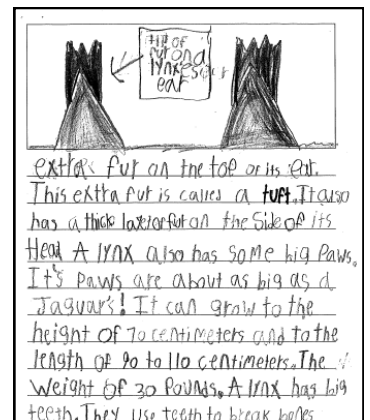 fur on a
lynxes
ear
extra fur on the top of its ear.
This extra fur is called a tuft. It also
has a thick layer of fur on the side of its
Head A lynx also has some big Paws.
It's Paws are about as big as a
Jaguar's! It can grow to the
height of 70 centimeters and to the
length of 90 to 110 centimeters. The
weight of 30 Pounds. A lynx has big
teeth. They use teeth to break bones